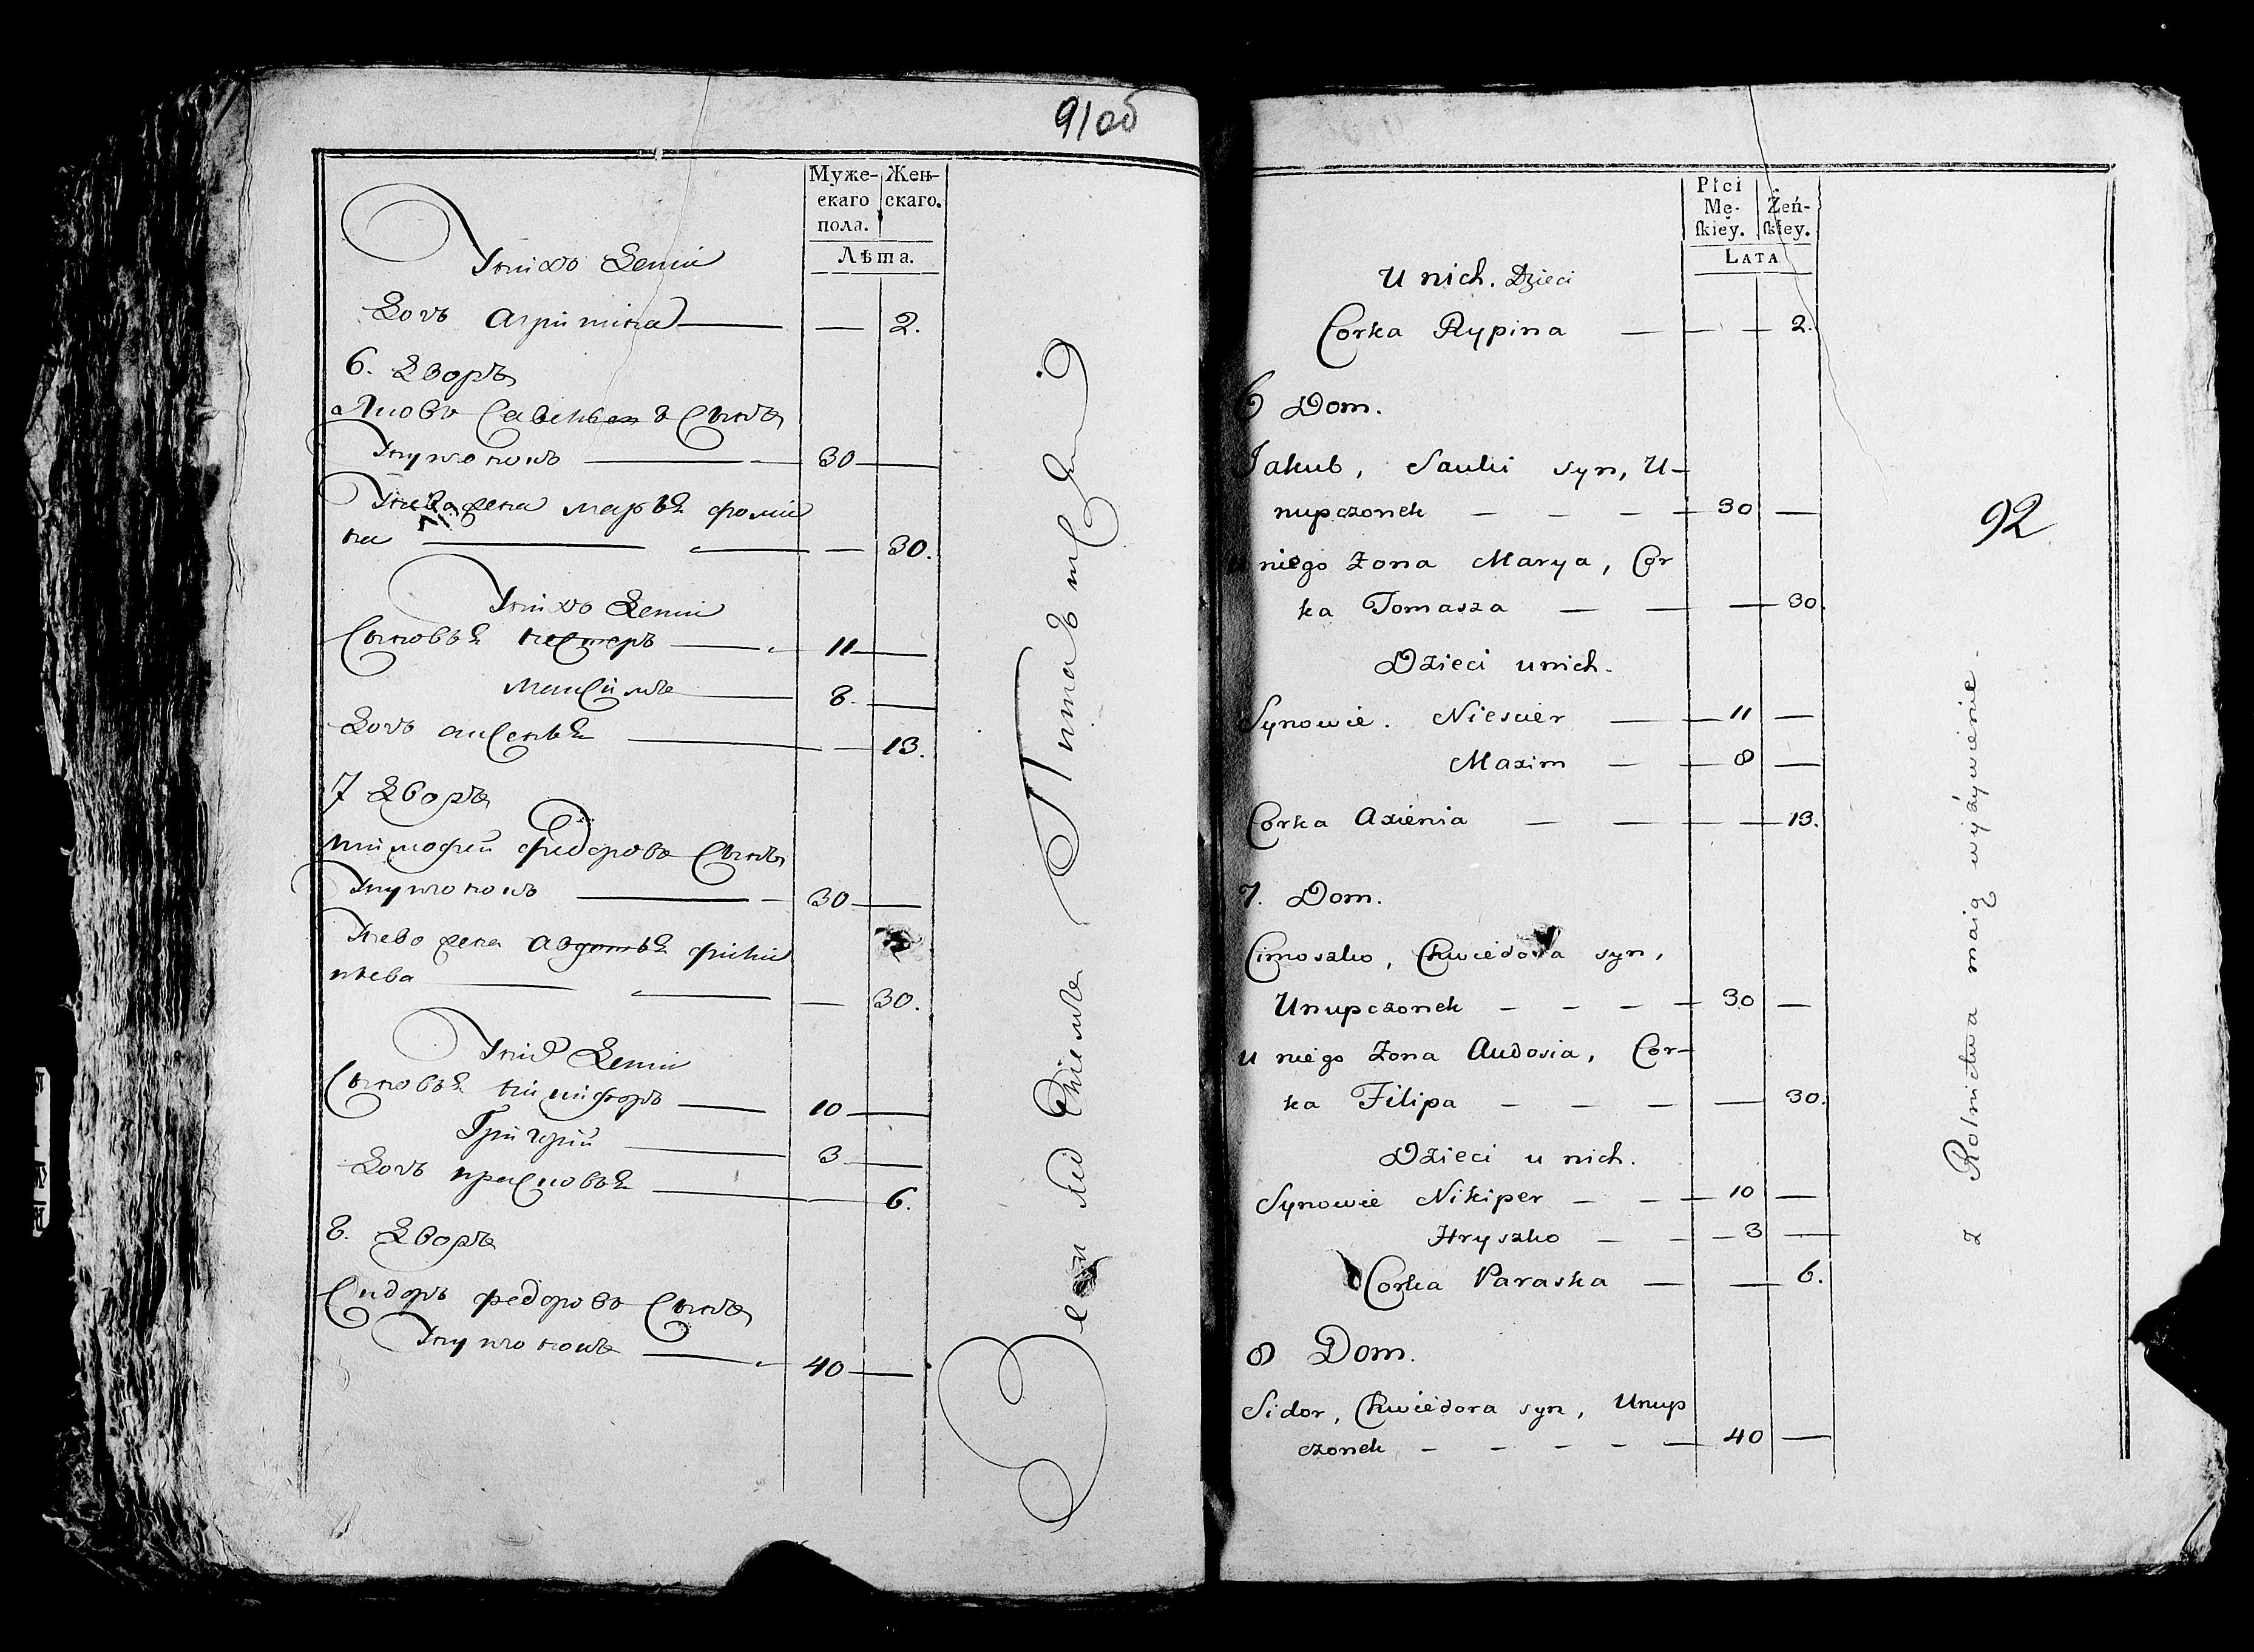 91 об
Муже- Жен-
скаго скаго.
пола.
Лѣта.
У нихъ дети
Дочь Агрипина — — 2.
6. Дворъ
Яковъ Савельевъ Сынъ
Унучонокъ — 30 —
У нево жена Марья Фоми
на — — 30.
У нихъ дети
Сыновья Нестеръ — 11 —
Максимъ — 8. —
Дочь Аксенья — — 13.
7 Дворъ
Тимофей Федоровъ Сынъ
Унучонокъ — 30 —
У нево жена Авдотья Фили
пьева — — 30.
У них дети
Сыновья Никифоръ — 10 —
Григорий — 3 —
Дочь Прасковья — — 6.
8. Дворъ
Сидоръ Федоровъ Сынъ
Унучонокъ — 40 —
Płci
Mę- Żeń-
skiey. skiey.
LATA
U nich. Dzieci
Corka Rypina — — — 2.
6 Dom.
Jakub, Sauki syn, U-
nupczonek — — — — 30 —
u niego Zona Marya, Cor
ka Tomasza — — — 30.
Dzieci u nich.
Synowie. Niescier — — 11 —
Maxim — — 8 —
Corka Axienia — — — — 13.
7. Dom.
Cimoszko, Chwiedora syn,
Unupczonek — — — — 30 —
u niego Zona Audosia, Cor-
ka Filipa — — — — 30.
Dzieci u nich.
Synowie Nikiper — — — 10 —
Hryszko — — — 3 —
Corka Paraska — — 6.
8 Dom.
Sidor, Chwiedora syn, Unup
czonek — — — — — 40 —
92
z Rolnictwa maią wyżywienie.